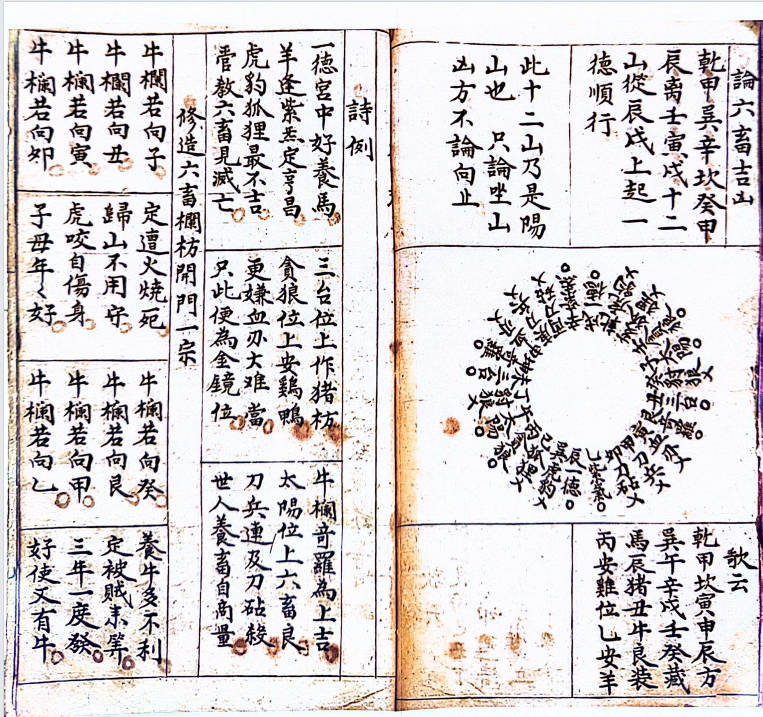 論六畜吉山
乾甲巽辛坎癸申
辰离壬寅戌十二
山從辰戌上起一
德順行
此十二山乃是陽
山也 只論坐山
凶方不論向止
辰一德
乙紫氣
巽虎豹
卯刀砧
甲刀兵
歌云
乾甲坎寅申辰方
巽午辛戌壬癸藏
馬辰猪丑牛艮装
丙安雞位乙安羊
詩例
一德宮中好養馬
三台位上作猪枋
牛欄奇羅為上吉
羊逢紫炁定亨昌
貪狼位上安鷄鴨
太陽位上六畜良
虎豹狐狸最不吉
更嫌血刃大难當
刀兵連及刀砧殺
管教六畜見滅亡
只此便為金鏡位
世人養畜自商量
修造六畜欄枋開門一宗
牛欄若向子
定遭火燒死
牛欄若向癸
養牛多不利
牛欄若向丑
歸山不用守
牛欄若向艮
定被賊未筭
牛欄若向寅
虎咬自傷身
牛欄若向甲
三年一度發
牛欄若向卯
子母年〻好
牛欄若向乙
好使又有牛